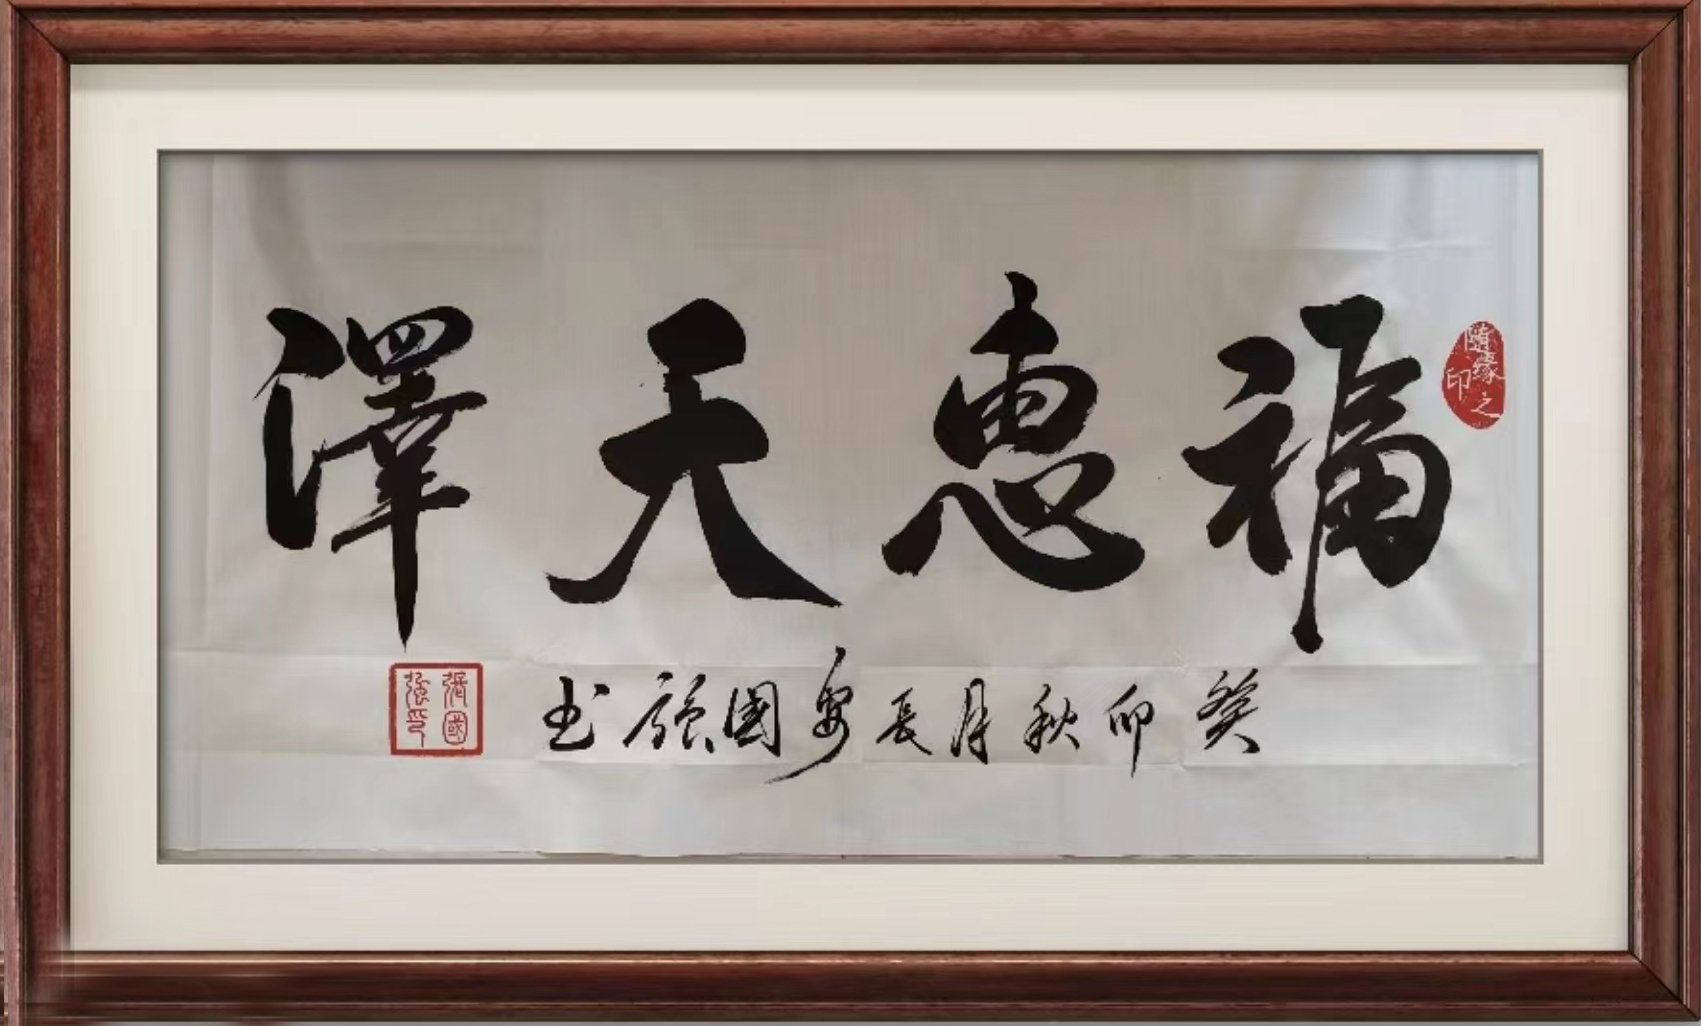 福惠天澤
隨緣之印
癸卯秋月長安國強书
張國強印